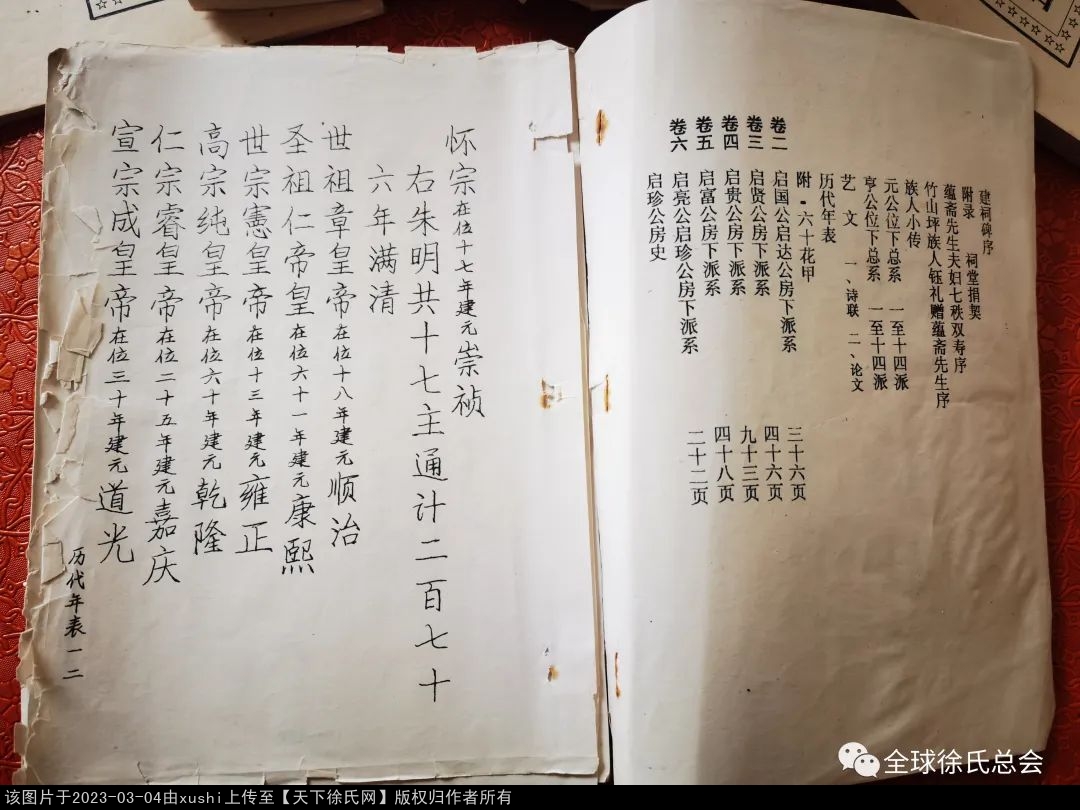 建祠碑序
附录 祠堂捐契
蕴斋先生夫妇七秩双寿序
竹山坪族人钰礼赠蕴斋先生序
族人小传
元公位下总系 一至十四派
亨公位下总系 一至十四派
艺 文 一、诗联 二、论文
历代年表
附·六十花甲
卷二 启国公启达公房下派系 三十六页
卷三 启贤公房下派系 四十六页
卷四 启贵公房下派系 九十三页
卷五 启富公房下派系 四十八页
卷六 启亮公启珍公房下派系 二十二页
启珍公房史
怀宗在位十七年建元崇祯
右朱明共十七主通计二百七十
六年满清
世祖章皇帝在位十八年建元顺治
圣祖仁帝皇在位六十一年建元康熙
世宗憲皇帝在位十三年建元雍正
高宗纯皇帝在位六十年建元乾隆
仁宗睿皇帝在位二十五年建元嘉庆
宣宗成皇帝在位三十年建元道光
历代年表一二
全球徐氏总会
该图片于2023-03-04由xushi上传至【天下徐氏网】版权归作者所有